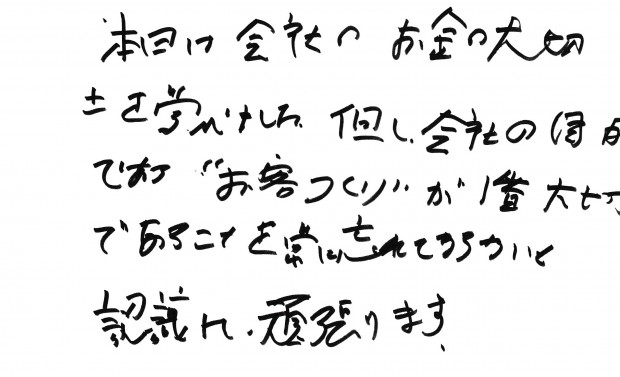 本日は会社のお金の大切
さを学べました。但し、会社の得
です “お客つくり” が1番大切
であることを常に忘れてはならないと
認識し、頑張ります。